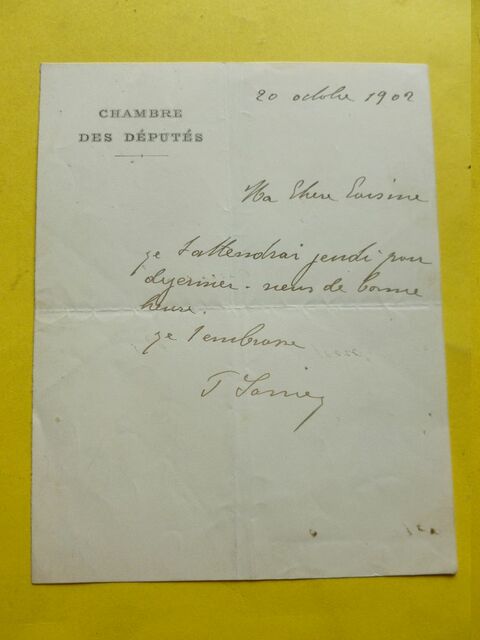 CHAMBRE
DES DÉPUTÉS
20 octobre 1902
Ma Chere Cousine
je t'attendrai jeudi pour
dejeuner. viens de bonne
heure.
je t'embrasse